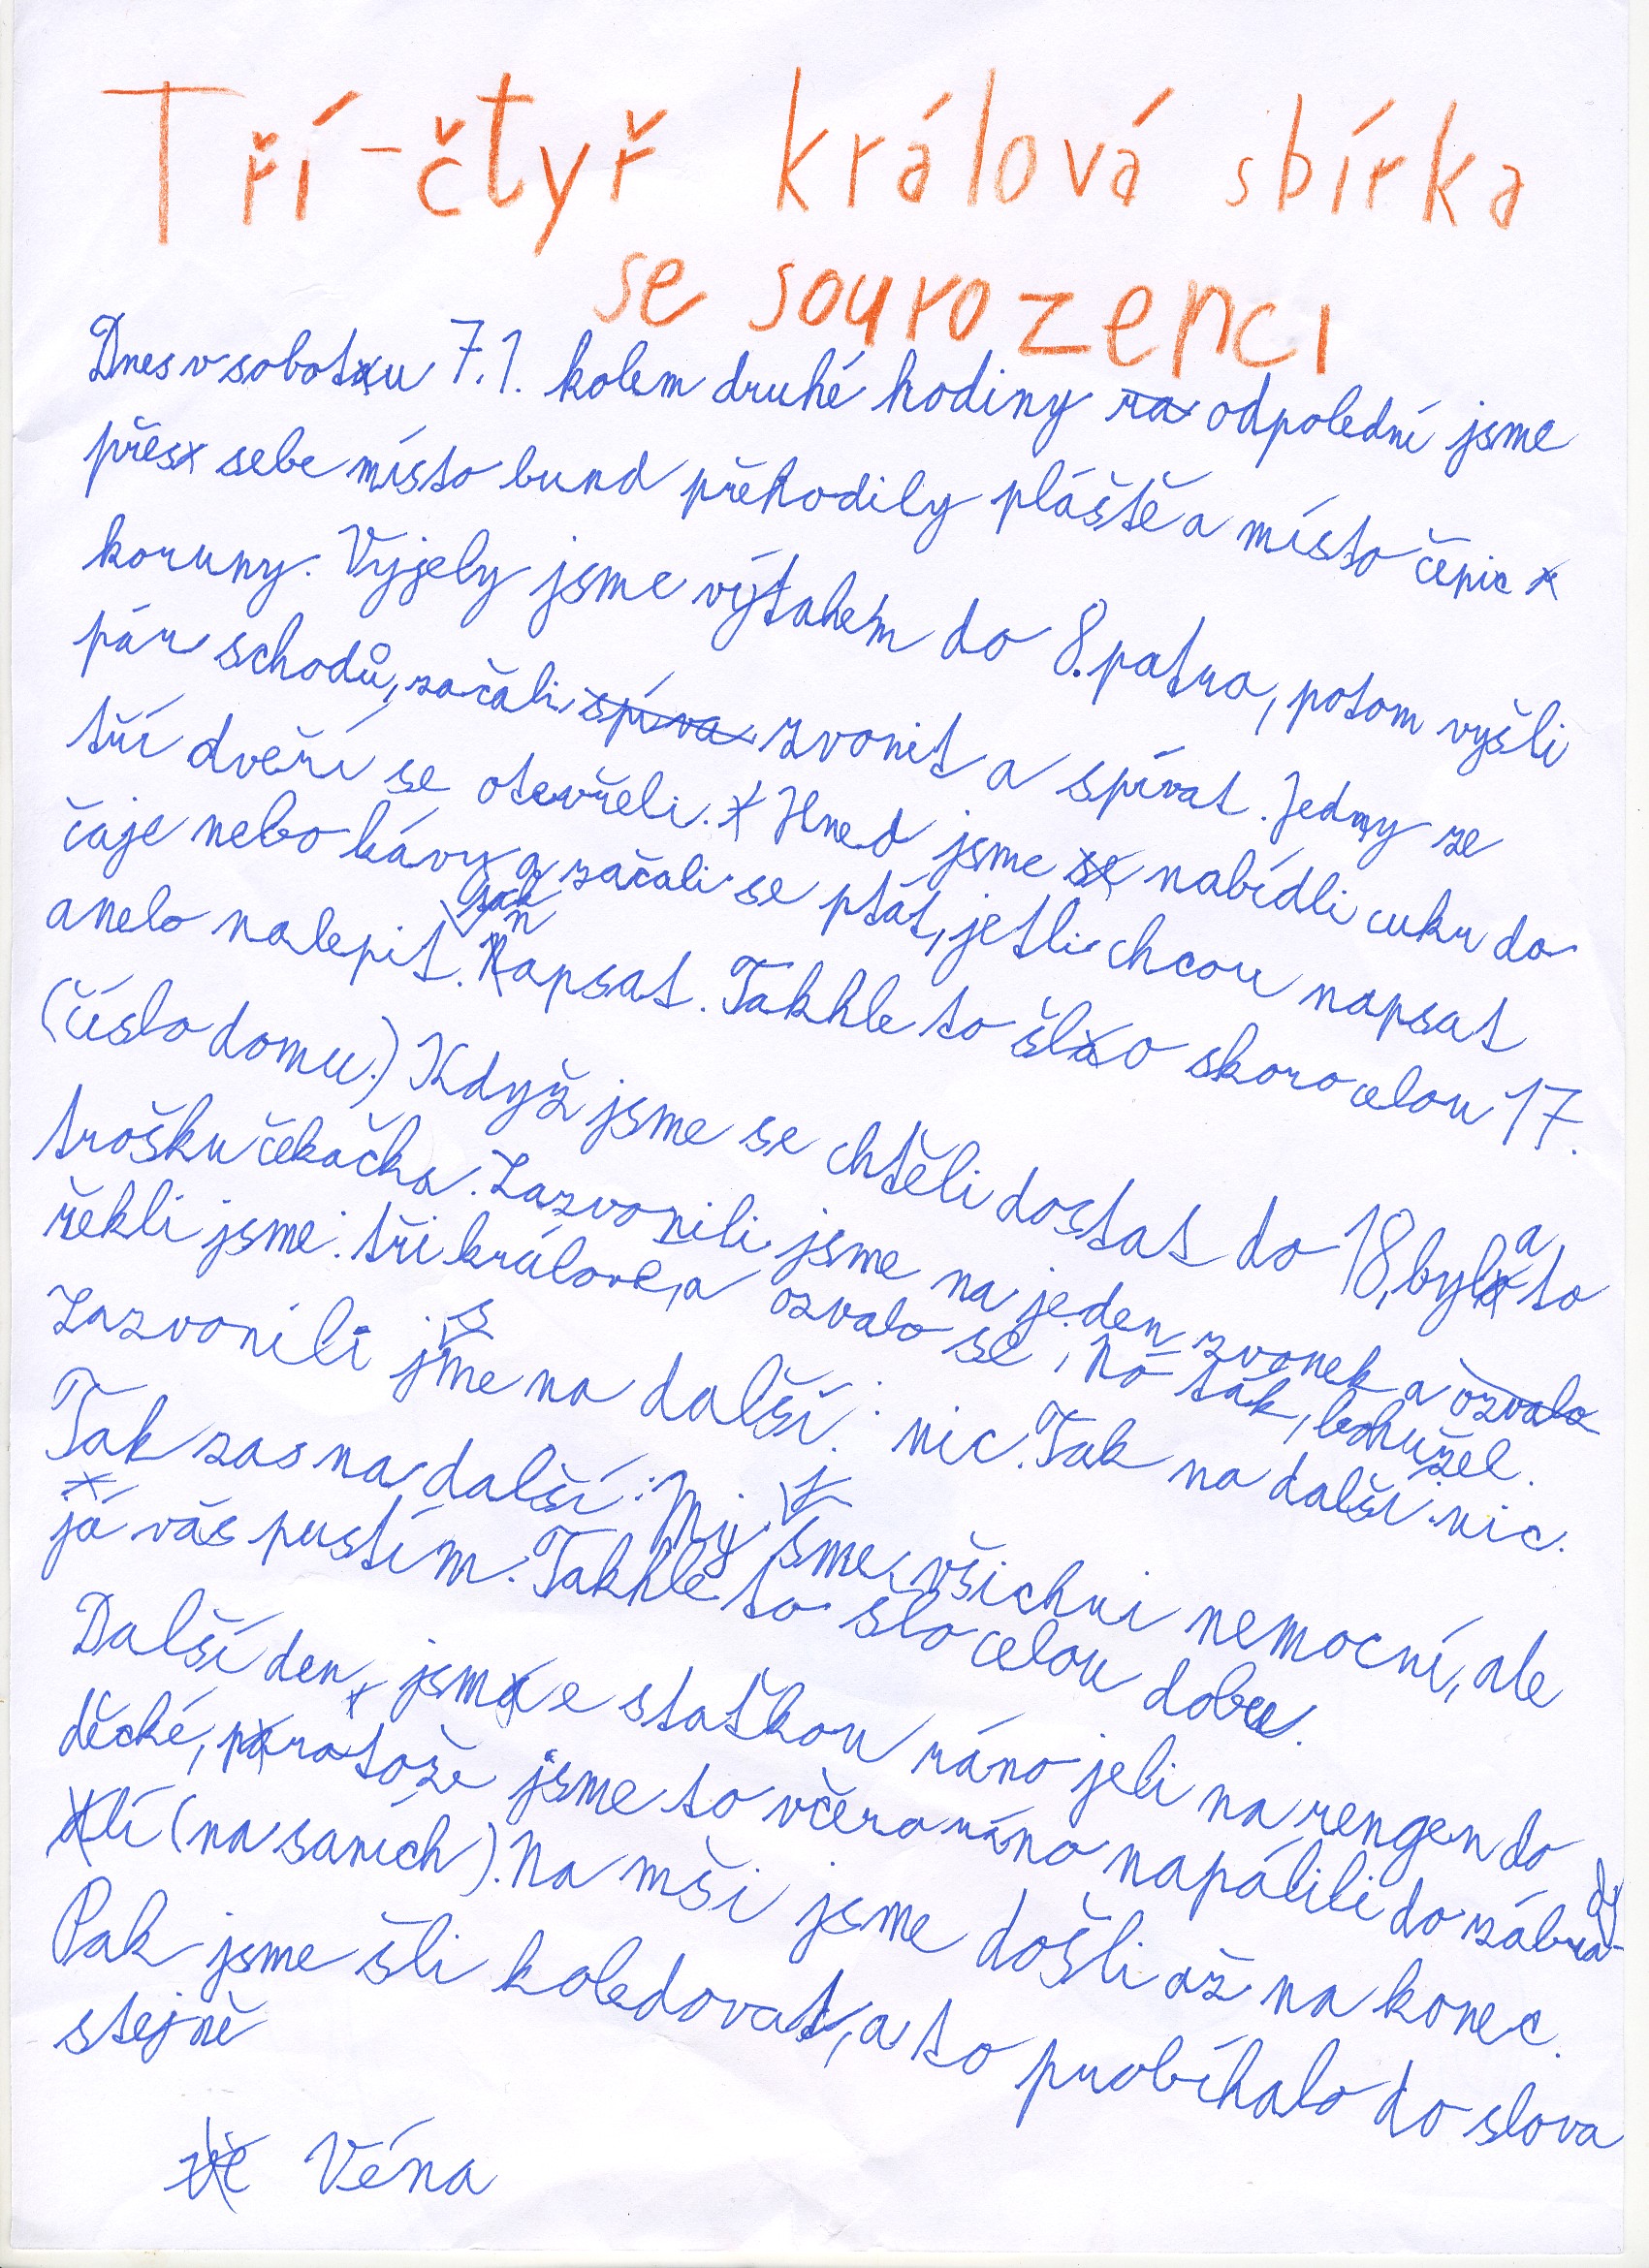 Tří-čtyř králová sbírka
se sourozenci
Dnes v sobotu 7.1. kolem druhé hodiny odpolední jsme
přes sebe místo bund přehodily pláště a místo čepic
koruny. Vyjely jsme výtahem do 8. patra, potom vyšli
pár schodů, začali zvonit a spívat. Jedny ze
tří dveří se otevřeli. Hned jsme nabídli cukr do
čaje nebo kávy a začali se ptát, jetli chcou napsat
anebo nalepit. tak napsat. Takhle to šlo skoro celou 17.
(číslo domu.) Když jsme se chtěli dostat do 18, byla to
trošku čekačka. Zazvonili jsme na jeden zvonek a
řekli jsme: tři králove, a ozvalo se, no tak, bohužel.
Zazvonili jsme na další: nic. Tak na další: nic.
Tak zas na další: My sme všichni nemocní, ale
já vás pustím. Takhle to šlo celou dobu.
Další den, jsme staťkou ráno jeli na rengen do
děcké, protože jsme to včera ráno napálili do zábrady
lí (na saních). Na mši jsme došli až na konec.
Pak jsme šli koledovat, a to probíhalo do slova
stejně
Véna